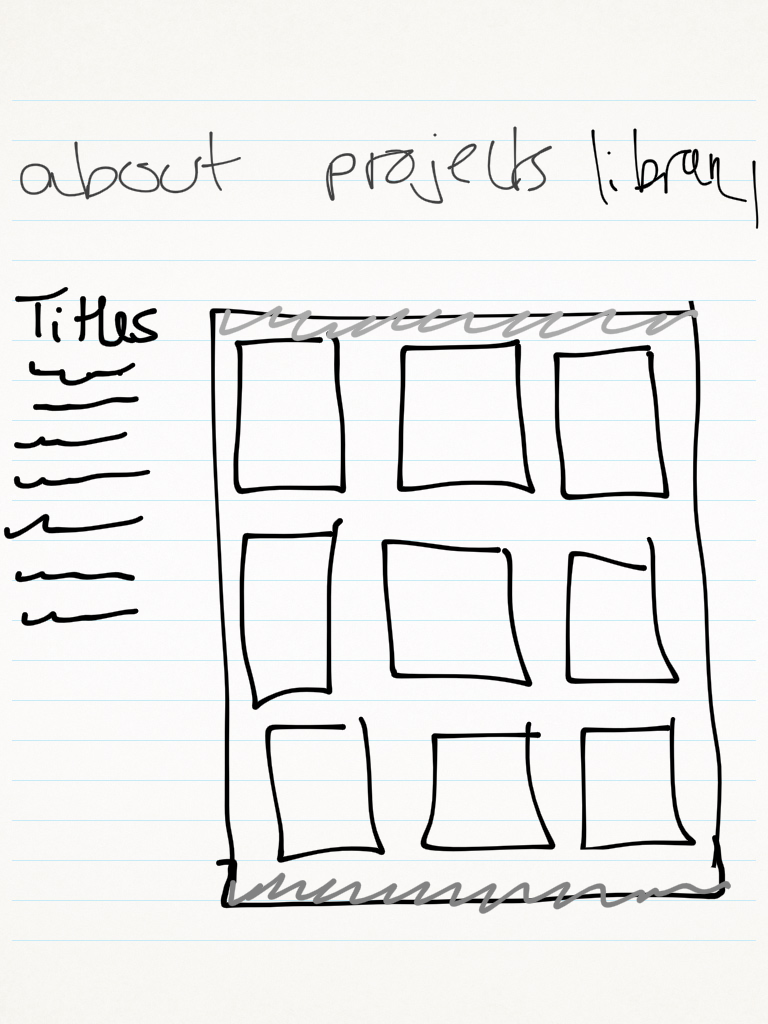 about projects library
Titles